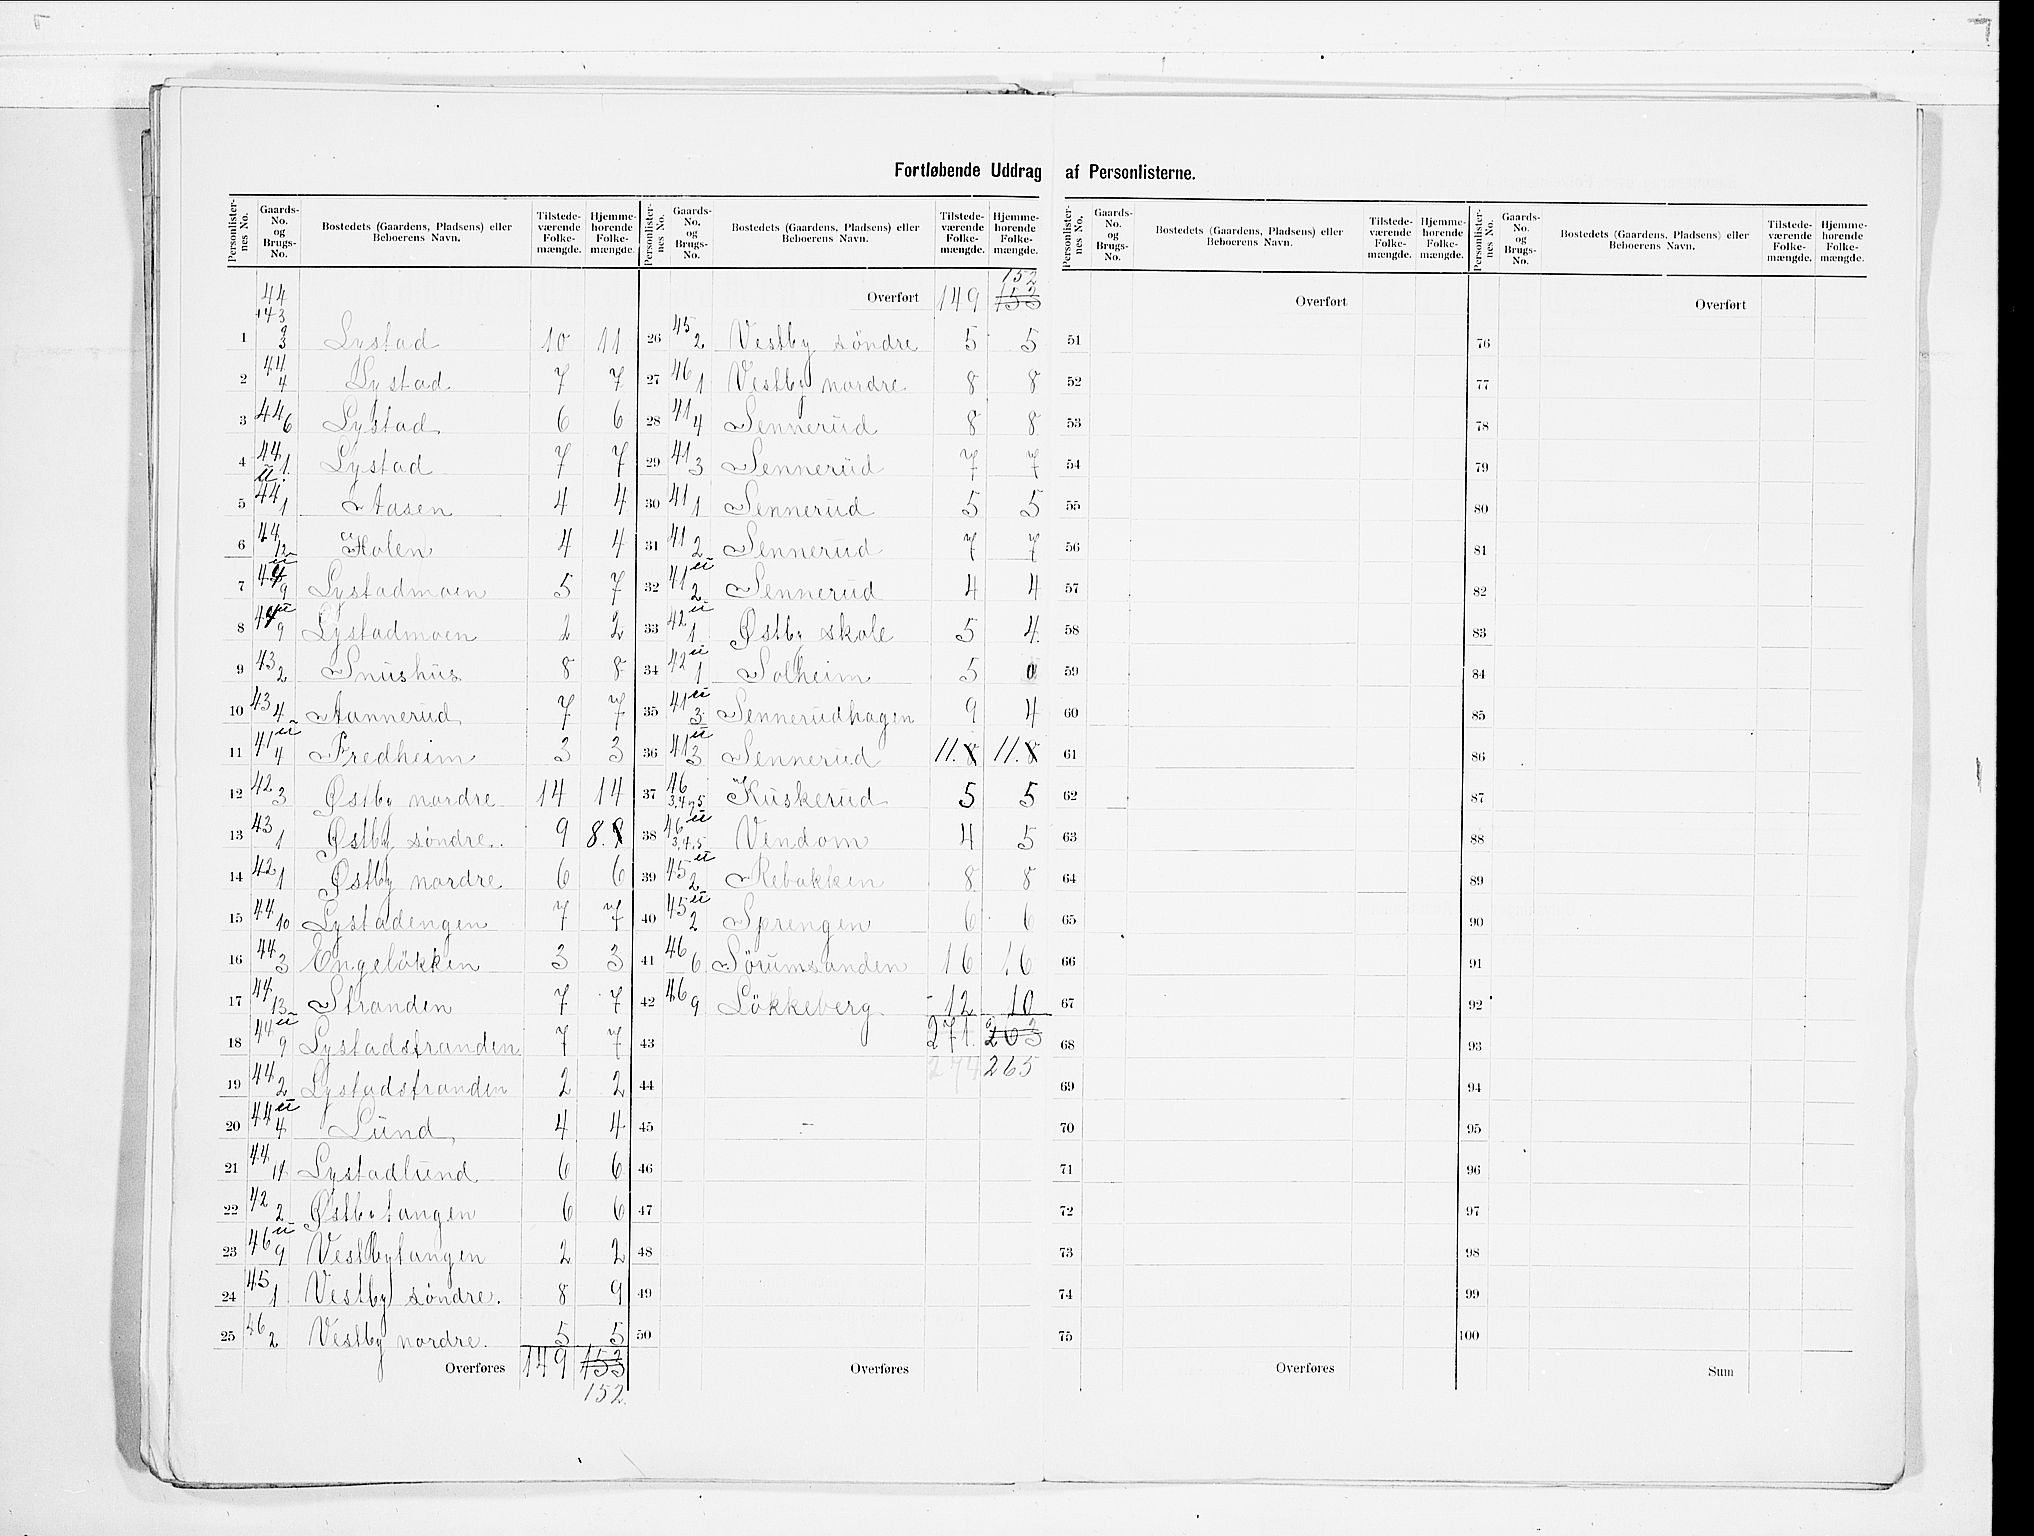 Fortløbende Uddrag af Personlisterne.
Personlister-nes No. Gaards-No. og Brugs-No. Bostedets (Gaardens, Pladsens) eller Beboerens Navn. Tilstede-værende Folke-mængde. Hjemme-hørende Folke-mængde.
1 44 143 9 3 Lystad 10 11
2 44 4 Lystad 7 7
3 44 6 Lystad 6 6
4 44 1 Lystad 7 7
5 44 u 1 Aasen 4 4
6 44 12 Holen 4 4
7 44 u 9 Lystadmoen 5 7
8 44 u 9 Lystadmoen 2 2
9 43 2 Snushus 8 8
10 43 4 Aannerud 7 7
11 41 u 4 Fredheim 3 3
12 42 3 Østby nordre 14 14
13 43 1 Østby søndre. 9 8.
14 42 1 Østby nordre 6 6
15 44 10 Lystadengen 7 7
16 44 3 Engeløkken 3 3
17 44 13 Stranden 7 7
18 44 u 9 Lystadstranden 7 7
19 44 2 Lystadstranden 2 2
20 44 u 4 Lund 4 4
21 44 11 Lystadlund 6 6
22 42 2 Østbytangen 6 6
23 46 u 9 Vestbytangen 2 2
24 45 1 Vestby søndre. 8 9
25 46 2 Vestby nordre. 5 5
Overføres 149 153
152
Personlister-nes No. Gaards-No. og Brugs-No. Bostedets (Gaardens, Pladsens) eller Beboerens Navn. Tilstede-værende Folke-mængde. Hjemme-hørende Folke-mængde.
152
Overført 149 153
26 45 2 Vestby søndre 5 5
27 46 1 Vestby nordre 8 8
28 41 4 Sennerud 8 8
29 41 3 Sennerud 7 7
30 41 1 Sennerud 5 5
31 41 2 Sennerud 7 7
32 41 u 2 Sennerud 4 4
33 42 u 1 Østby skole 5 4
34 42 u 1 Solheim 5 0
35 41 u 3 Sennerudhagen 9 4
36 41 u 3 Sennerud 11. 8 11. 8
37 46 3,4,5 Kuskerud 5 5
38 46 u 3,4,5 Vendom 4 5
39 45 u 2 Rebakken 8 8
40 45 u 2 Sprengen 6 6
41 46 6 Sörumsanden 16 16
42 46 9 Lökkeberg 12 10
43 271 263
44 274 265
45
46
47
48
49
50
Overføres
Personlister-nes No. Gaards-No. og Brugs-No. Bostedets (Gaardens, Pladsens) eller Beboerens Navn. Tilstede-værende Folke-mængde. Hjemme-hørende Folke-mængde.
Overført
51
52
53
54
55
56
57
58
59
60
61
62
63
64
65
66
67
68
69
70
71
72
73
74
75
Overføres
Personlister-nes No. Gaards-No. og Brugs-No. Bostedets (Gaardens, Pladsens) eller Beboerens Navn. Tilstede-værende Folke-mængde. Hjemme-hørende Folke-mængde.
Overført
76
77
78
79
80
81
82
83
84
85
86
87
88
89
90
91
92
93
94
95
96
97
98
99
100
Sum